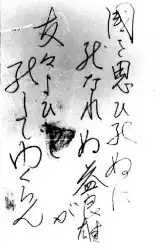 國を思ひ死ぬに
死なれぬ益良雄が
友々よびつ
死してゆくらん